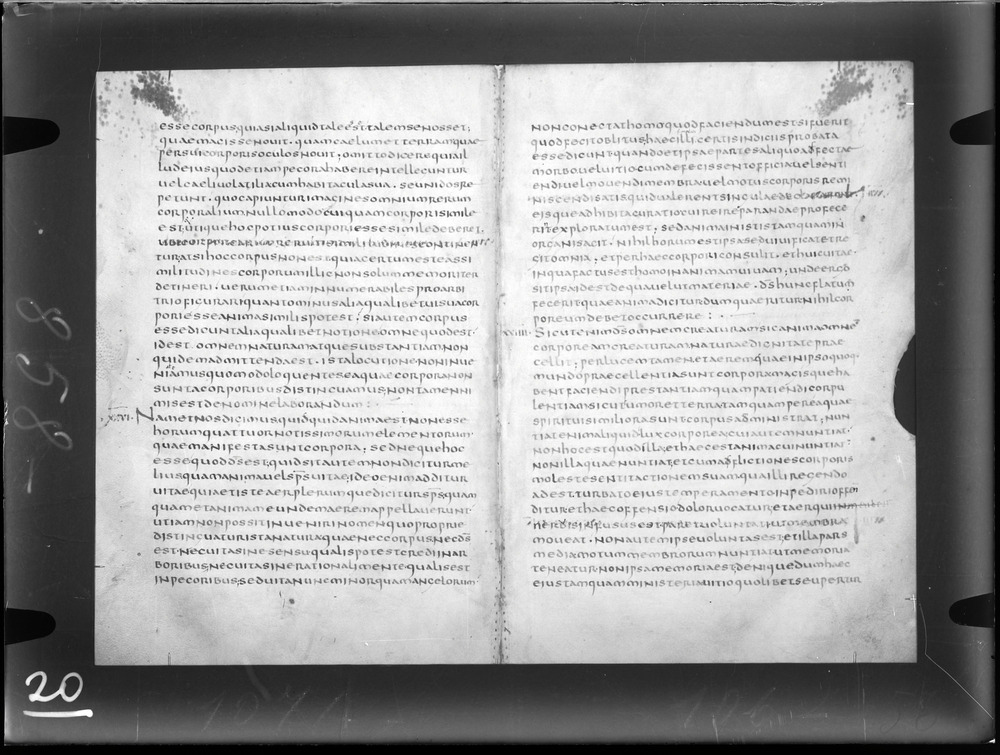 essecorpus;quiasialiquidtaleest·talemsenosset;
quaemacissenouit·quamcaelumetterramquae
persuicorporisoculosnouit;omittodicerequiail
ludeiusquodetiampecorahabereintellecuntur
uelcaeliuolatiliacumhabitaculasua·seunidosre
petunt·quocapiunturimaginesomniumrerum
corporaliumnullomodocuiquamcorporissimile
est;utiquehocpotiuscorporiessesimiledeberet·
turatsihoccorpusnonest·quiacertumesteassi
militudinescorporumillicnonsolummemoriter
detineri·uerumetiaminnumerabilesproarbi
triofigurari;quantominusaliaqualibetuisuacor
poriesseanimasimilispotest;siautemcorpus
essedicuntaliaqualibetnotioneomnequodest·
idest·omnemnaturamatquesubstantiamnon
quidemadmittendaest·istalocutionenoninue
niamusquomodoloquentes·eaquaecorporanon
suntacorporibusdistincuamus;nontamenni
misestdenominelaborandum:
·xxvi· Nametnosdicimusquidquidanimaest·nonesse
horumquattuornotissimorumelementorum·
quaemanifestasuntcorpora;sedneque hoc
essequoddsest;quidsitautemnondiciturme
liusquamanimauelspsuitae;ideoenimadditur
uitaequiaetisteaerplerumquedicitursps;quam
quametanimameundemaeremappellauerunt·
utiamnonpossitinueniri nomenquoproprie
distincuaturistanaturaquaeneccorpusnecds
est·necuitasinesensu;qualispotestcrediinar
boribus;necuitasinerationalimente;qualisest
inpecoribus;seduitanuncminorquamancelorum·
nonconectathomoquodfaciendumest·sifuerit
quodfecitoblitus;haecillicertisindiciisprobata
essedicunt;quandoetipsaepartesaliquoadfectae
morbo·ueluitiocumdefecissentofficiauelsenti
endi·uelmouendimembra·uelmotuscorporisremi
niscendi·satisquidualerentsingulaedeclararunt·
eisqueadhibitacuratio·cuireireparandaeprofece
rit·exploratumest;sedanimainististamquamin
organisagit·nihilhorumestipsa·sed uiuificatetre
gitomnia;etperhaeccorporiconsulit·ethuicuitae·
inquafactusesthomoinanimamuiuam;undeergo
sitipsa·idestdequauelutmateriae·dshuncflatum
fecerit·quaeanimadicitur·dumquaeriturnihilcor
poreumdebetoccurrere:
·xxviii· Sicutenimdsomnemcreaturam·sicanimaomnem
corporeamcreaturamnaturaedignitateprae
cellit;perlucemtamenetaeremquaeinipsoquoq·
mundopraecellentiasuntcorpora;macisqueha
bentfaciendiprestantiamquampatiendi·corpu
lentiam·sicutumoretterra·tamquamperea quae
spirituisimiliorasunt·corpusadministrat;nun
tiatenimaliquidluxcorporea;cuiautemnuntiat·
nonhocestquodilla;ethaecestanimacuinuntiat·
nonillaquaenuntiat;etcumadflictionescorporis
molestesentit·actionemsuamquailliregendo
adest·turbatoeiustemperamentoinpediri·offen
ditur·ethaecoffensiodoloruocatur;et aerqui
moueat·nonautemipseuoluntasest;etillapars
mediamotummembrorumnuntiat·utmemoria
teneatur·nonipsamemoriaest;deniquedumhaec
eiustamquamministeriauitioquolibetseu pertur
20